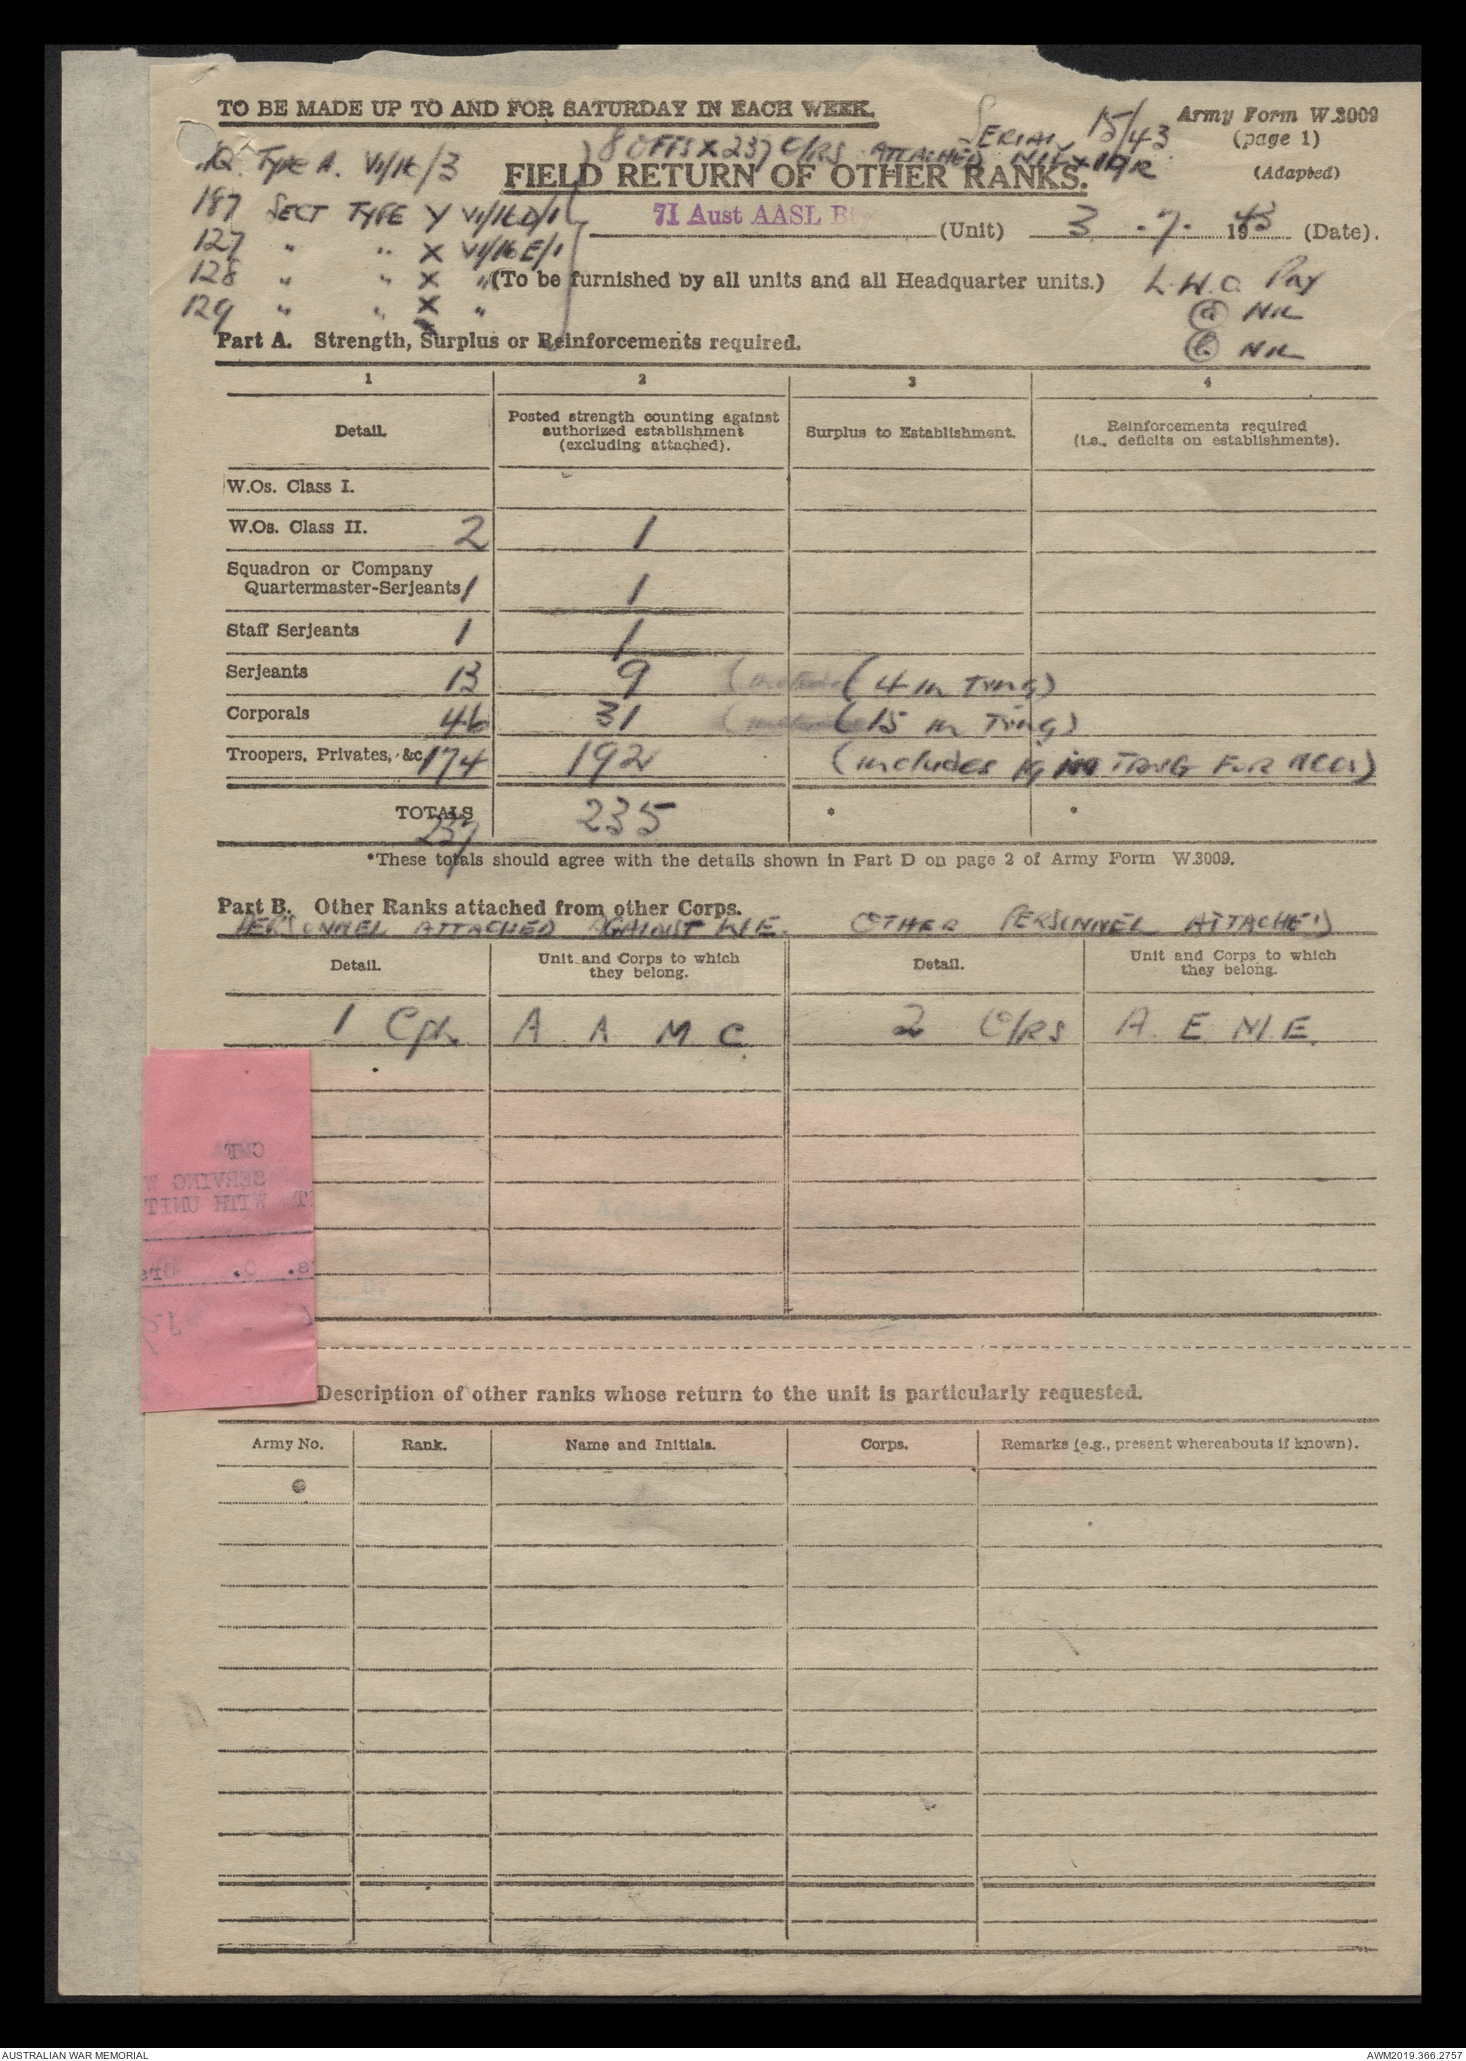 TO BE MADE UP TO AND FOR SATURDAY IN EACH WEEK.
SERIAL 15/43
Army Form W.3009
(page 1)
(Adapted)
HQ. TYPE A. VI/1C/3
8 OFFS X 237 O/RS ATTACHED NIL X 1 O/R
FIELD RETURN OF OTHER RANKS.
187 SECT TYPE Y VI/1C D/1
71 Aust AASL
(Unit) 3.7.1943 (Date).
127 " " X VI/1C E/1
128 " " X "
(To be furnished by all units and all Headquarter units.)
L.H.O. Pay
129 " " X "
(a) NIL
(b) NIL
Part A. Strength, Surplus or Reinforcements required.
1 2 3 4
Detail.
Posted strength counting against
authorized establishment
(excluding attached).
Surplus to Establishment.
Reinforcements required
(i.e., deficits on establishments).
W.Os. Class I.
W.Os. Class II. 2 1
Squadron or Company
Quartermaster-Serjeants 1 1
Staff Serjeants 1 1
Serjeants 13 9 (4 in Trng)
Corporals 46 31 (15 in Trng)
Troopers, Privates, &c. 174 192 (includes 19 in TRNG FOR NCOs)
TOTALS 237 235 * *
*These totals should agree with the details shown in Part D on page 2 of Army Form W.3009.
Part B. Other Ranks attached from other Corps.
PERSONNEL ATTACHED AGAINST W/E. OTHER PERSONNEL ATTACHED
Detail.
Unit and Corps to which
they belong.
Detail.
Unit and Corps to which
they belong.
1 Cpl. A A M C. 2 O/RS A. E. M. E.
CMF
SERVING W
WITH UNIT
Description of other ranks whose return to the unit is particularly requested.
Army No. Rank. Name and Initials. Corps. Remarks (e.g., present whereabouts if known).
AUSTRALIAN WAR MEMORIAL
AWM2019.366.2757